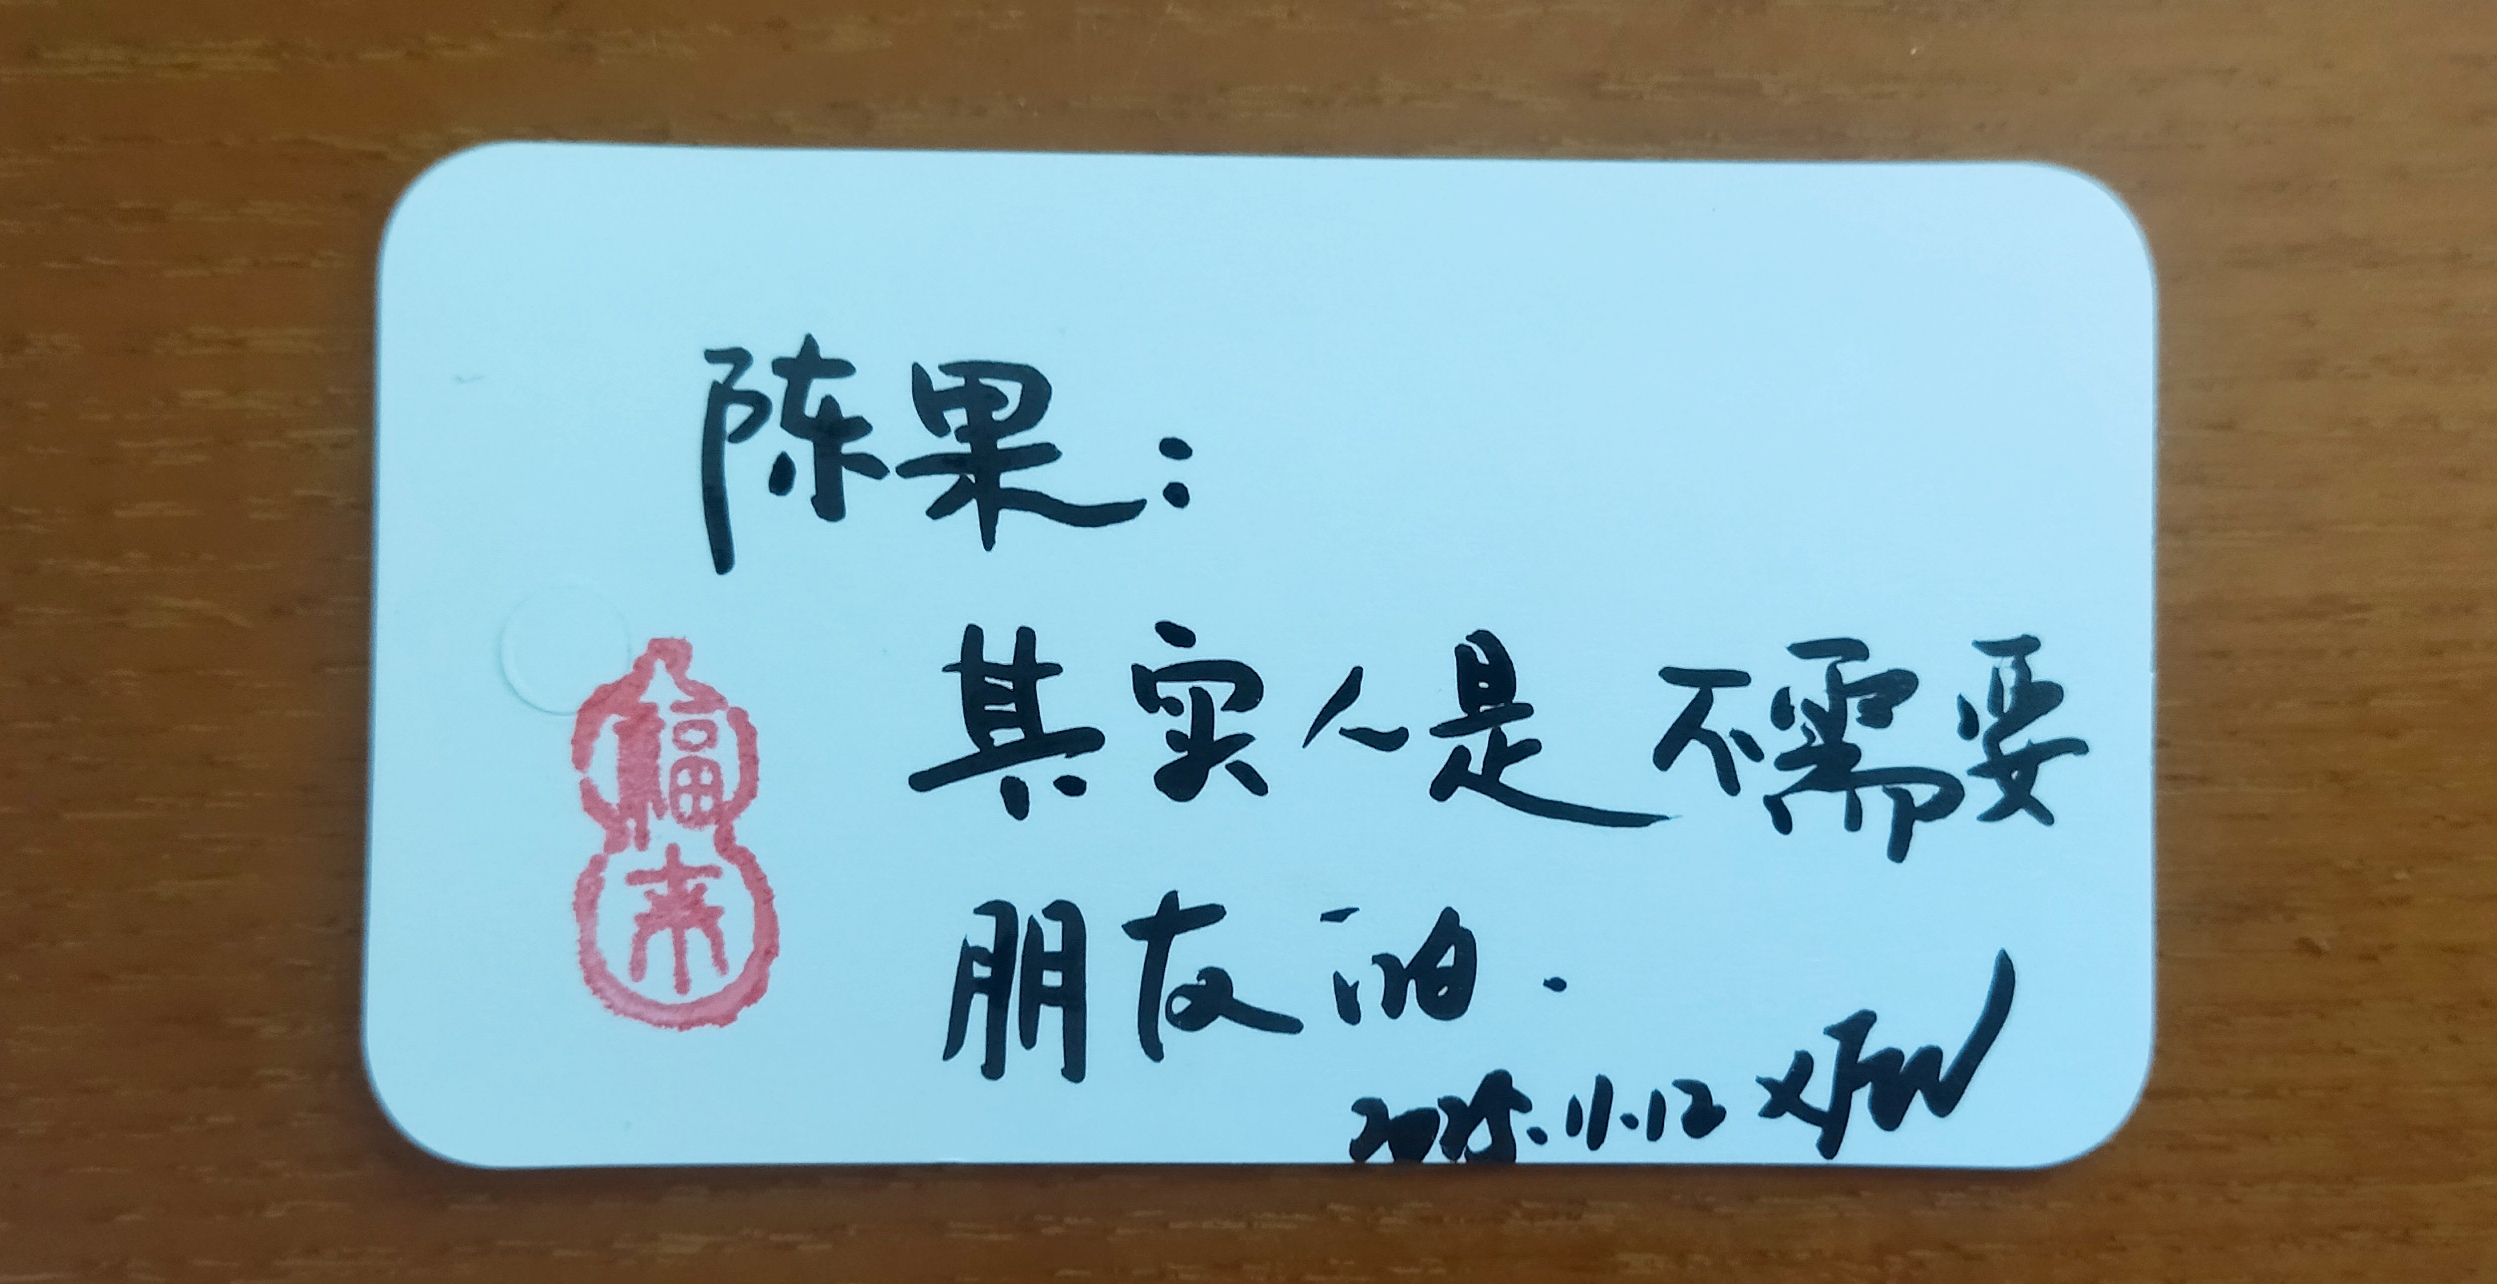 陈果：
其实人是不需要
朋友的.
2025.11.12 XJW
福
来